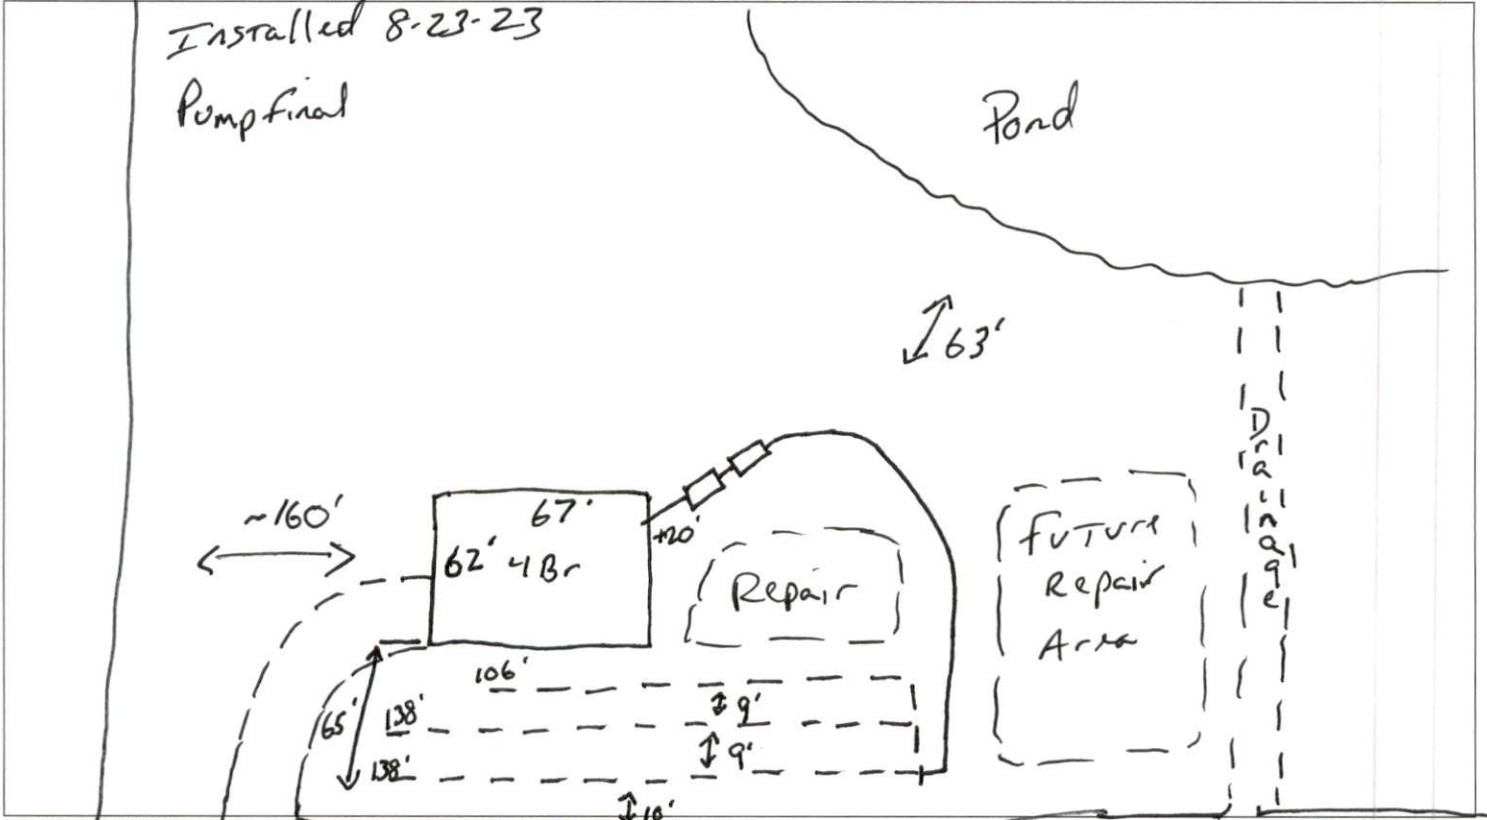 Installed 8-23-23
Pump final
Pond
63'
Drainage
~160'
67'
62' 4Br
+20'
Repair
Future
Repair
Area
106'
65'
138'
9'
138'
9'
10'